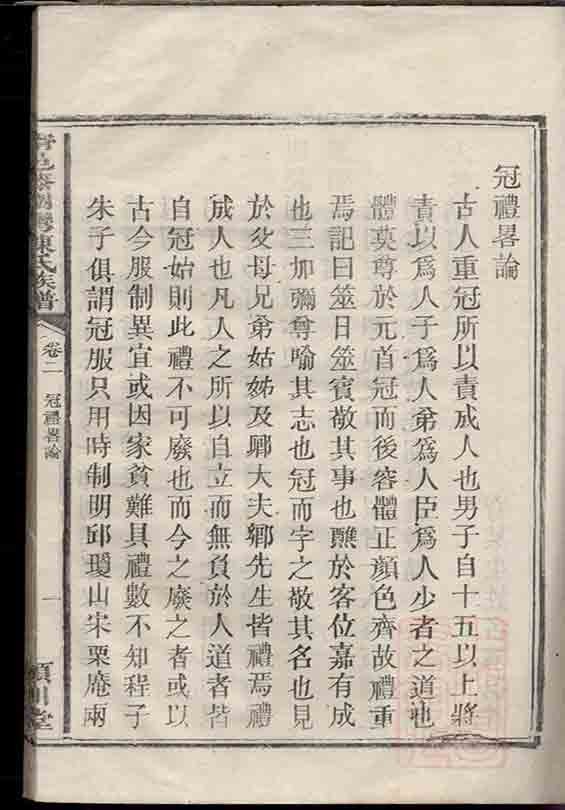 冠禮畧論
古人重冠所以責成人也男子自十五以上將
責以爲人子爲人弟爲人臣爲人少者之道也
體莫尊於元首冠而後容體正顔色齊故禮重
焉記曰筮日筮賓敬其事也醮於客位嘉有成
也三加彌尊喻其志也冠而字之敬其名也見
於父母兄弟姑姊及鄉大夫鄉先生皆禮焉禮
成人也凡人之所以自立而無負於人道者皆
自冠始則此禮不可廢也而今之廢之者或以
古今服制異宜或因家貧難具禮數不知程子
朱子俱謂冠服只用時制明邱瓊山宋栗庵兩
陳氏族譜
卷二
冠禮畧論
一
潁川堂